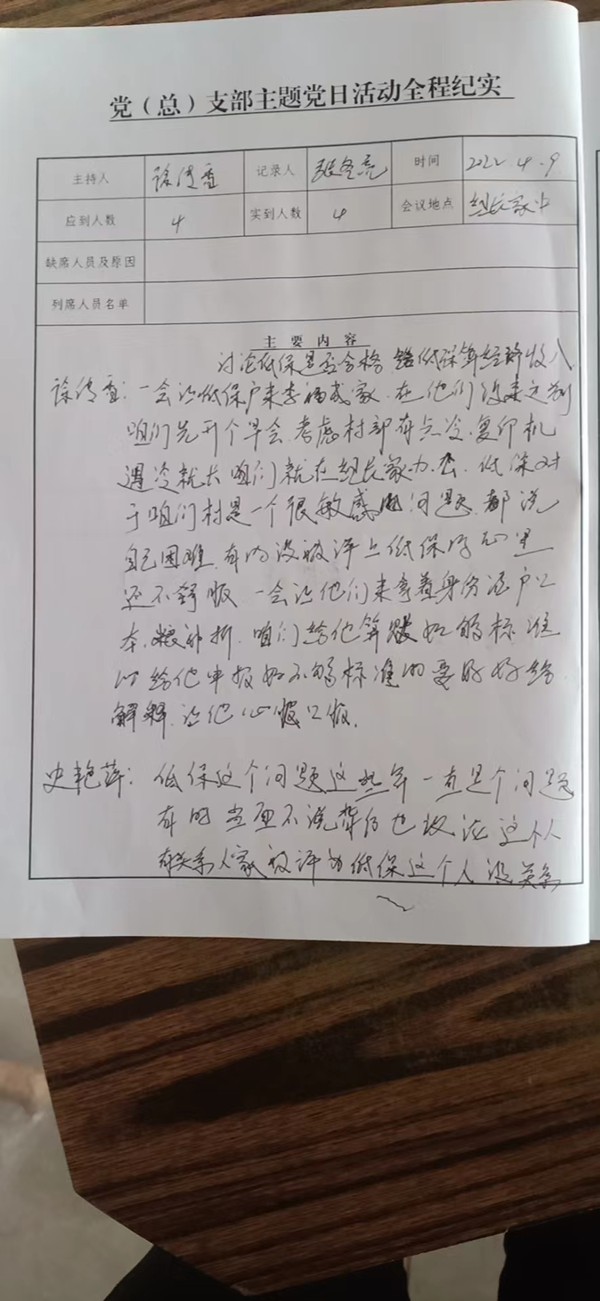 党（总）支部主题党日活动全程纪实
主持人 徐传香 记录人 张冬亮 时间 2022.4.9
应到人数 4 实到人数 4 会议地点 组长家中
缺席人员及原因
列席人员名单
主要内容
讨论低保是否合格 给低保算经济收入
徐传香：一会让低保户来李福成家．在他们没来之前
咱们先开个早会．考虑村部有点冷．复印机
遇冷就卡 咱们就在组长家办公．低保对
于咱们村是一个很敏感的问题．都说
自己困难．有的没被评上低保的心里
还不舒服 一会让他们来拿着身份证户口
本．粮补折．咱们给他算账如够标准
以给他申报如不够标准的要好好给
解释．让他心服口服．
史艳萍：低保这个问题这些年一直是个问题
有的当面不说背后也议论这个人
有关系人家被评为低保这个人没关系